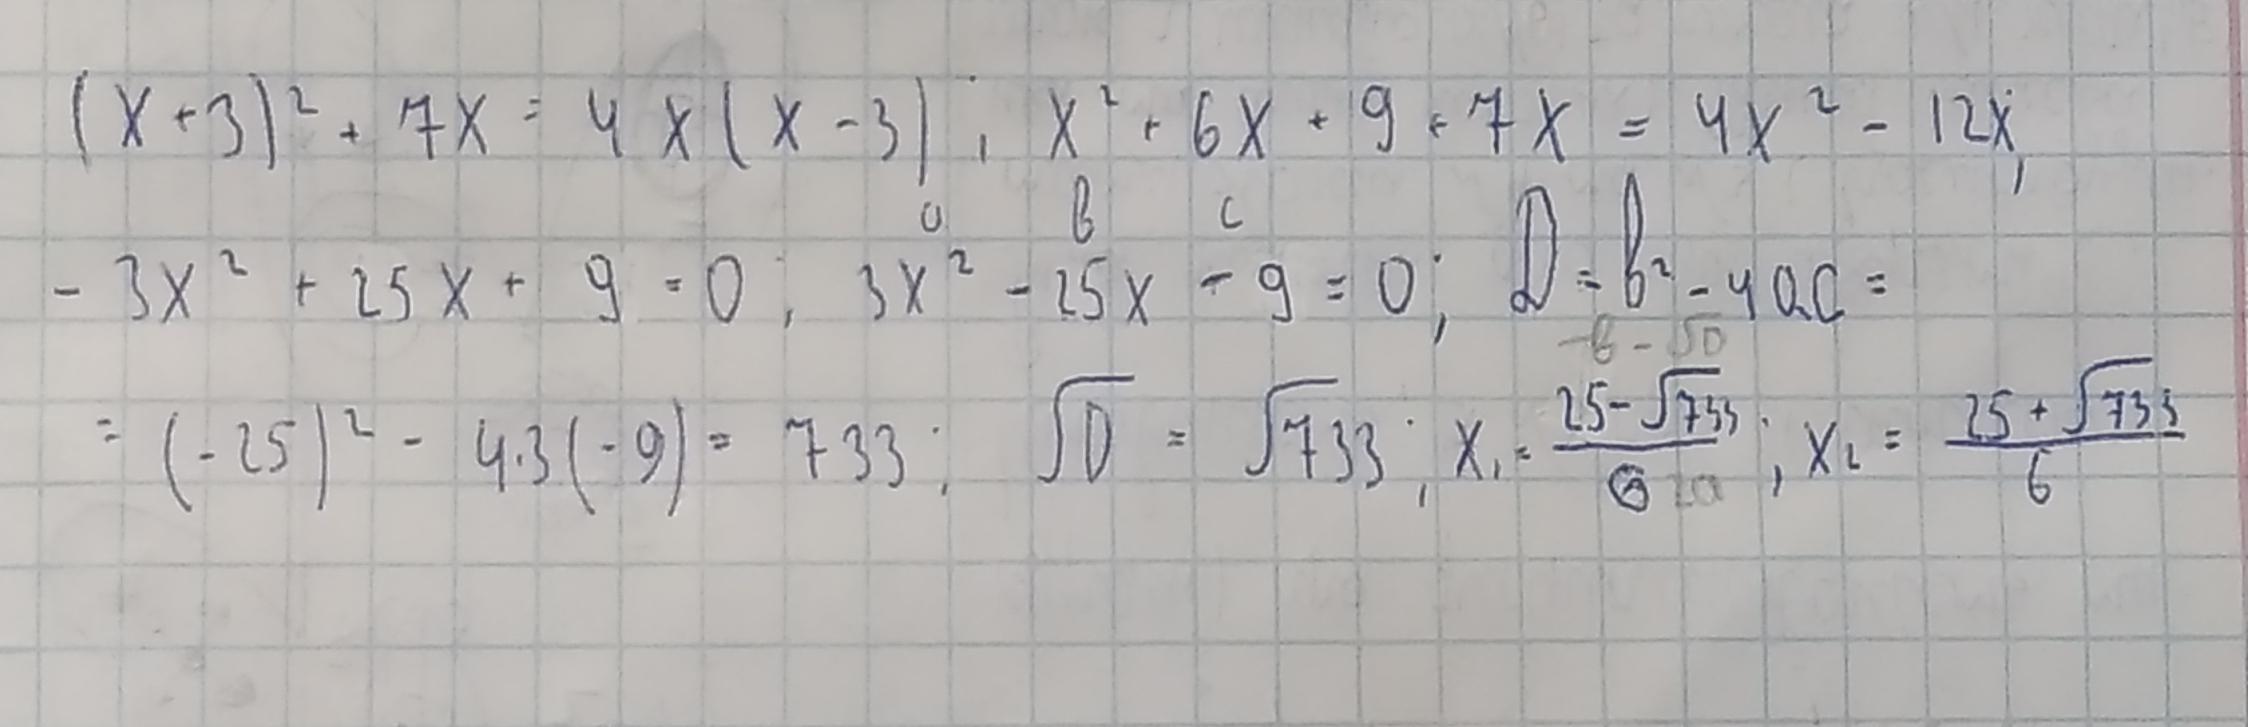 (x+3)² + 7x = 4x(x-3); x² + 6x + 9 + 7x = 4x² - 12x;
a b c
-3x² + 25x + 9 = 0; 3x² - 25x - 9 = 0; D = b² - 4ac =
-b - √D
= (-25)² - 4·3(-9) = 733; √D = √733; x₁ = (25-√733)/6 2a; x₂ = (25+√733)/6